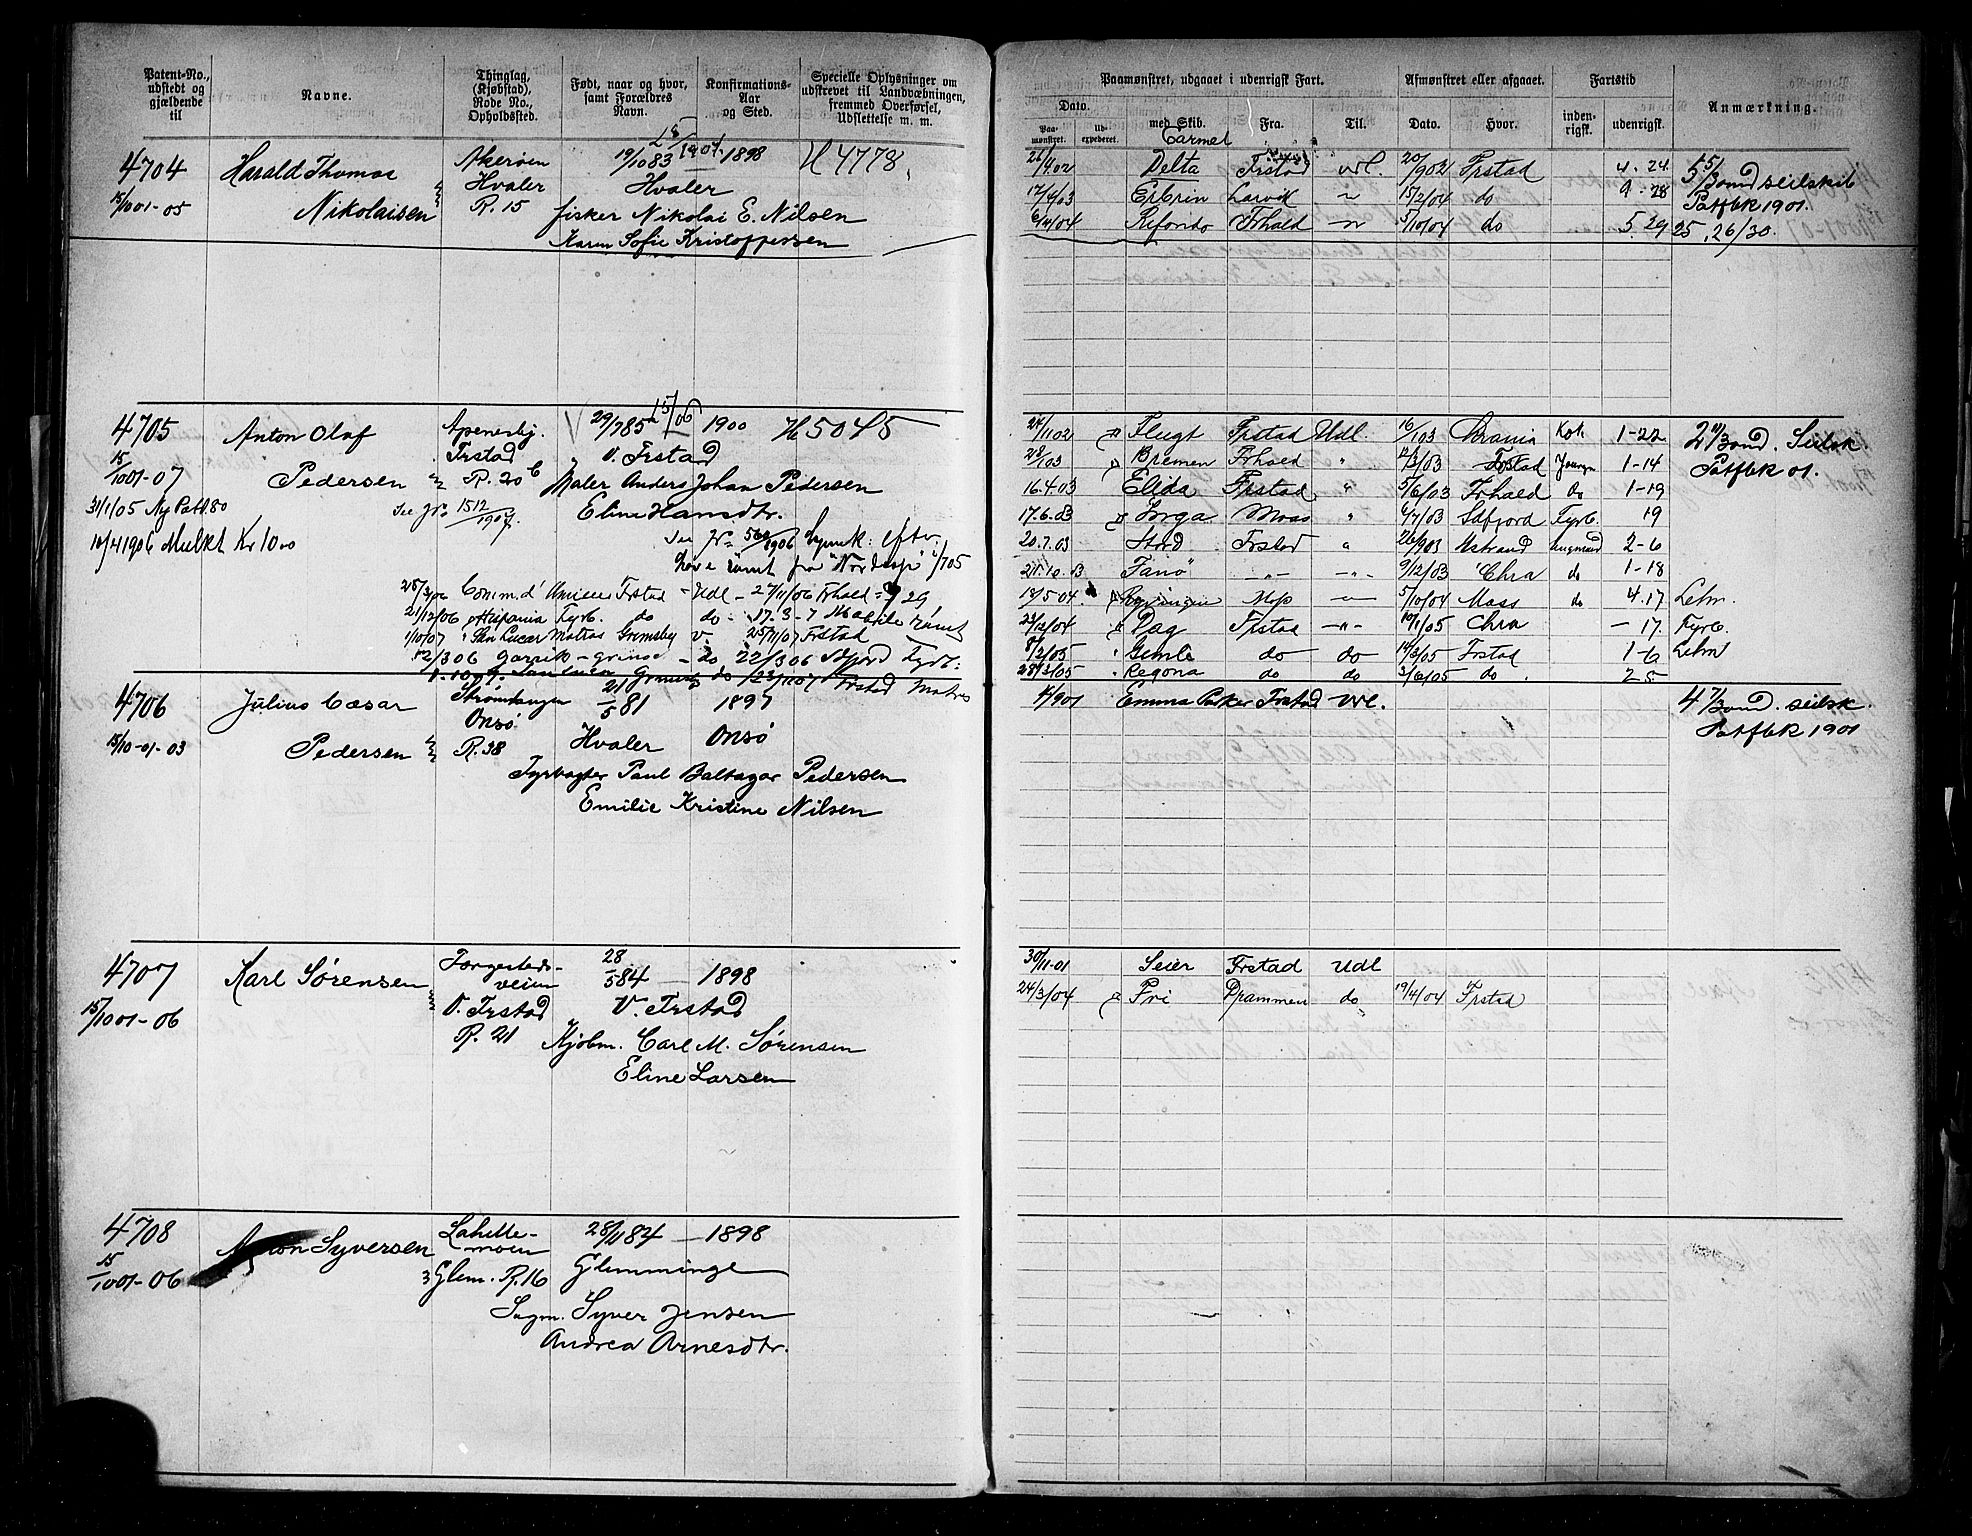 Patent-No., udstedt og gjældende til
Navne.
Thinglag, (Kjøbstad), Rode No., Opholdssted.
Født, naar og hvor, samt Forældres Navn.
Konfirmations-Aar og Sted.
Specielle Oplysninger om udskrevet til Landværnbningen, fremmed Overførsel, Udslettelse m. m.
4704 Harald Thomas Akerøen 19/10 83 1898 H 4778
15/10 01-05 Nikolaisen Hvaler Hvaler
R. 15 fisker Nikolai E. Nilsen
Karen Sofie Kristoffersen
4705 Anton Olaf Apenesbj. 29/7 85 15/06 1900 H 5045
15/10 01-07 Frstad V. Frstad
Pedersen R. 20 b Maler Anders Johan Pedersen
31/1/05 Ny Patl. 80 See Jr. 1512/1907. Eline Hansdtr.
10/4 1906 Mulkt Kr 10 00
rømt fra "Nordsjø"
Frstad - Udl - 27/11/06 Frhald - 9 29
21/12/06 Hispania Fyrb. do do - 17-3-7 Mobile rømt
1/10/07 San Lucar Matros Grimsby 25/11/07 Frstad
12/3 06 Garrik - - do 22/3 06 Fyrb:
4706 Julius Cæsar Strømtangen 21/5 81 1897
15/10-01-03 Pedersen Onsø R. 38 Hvaler Onsø
Fyrvogter Paul Baltazar Pedersen
Emilie Kristine Nilsen
4707 Karl Sørensen Torgesteds- 28/5 84 1898
15/10 01-06 veien V. Frstad V. Frstad
R. 21 Kjøbm. Carl M. Sørensen
Eline Larsen
4708 Syversen Lahelle- 28/11 84 1898
15/10 01-06 moen Glem. R. 16 Glemminge
Sagm. Syver Jensen
Andrea Arnesdtr.
Paamønstret, udgaaet i udenrigsk Fart.
Afmønstret eller afgaaet.
Fartstid
Anmærkning.
Dato.
Paamønstret. Udexpederet. med Skib. Fra. Til. Dato. Hvor. indenrigsk. udenrigsk.
Carmel
26/4 02 Delta Frstad Udl. 20/9 02 Frstad 4-24 5 5/30md seilskib
17/4/03 Erbrin Larvik " 15/2/04 do 9-28 Patfbk 1901.
6/4/04 Refondo Frhald " 5/10/04 do 5.29 25, 26/30
24/11 02 Flugt Frstad Udl. 16/1 03 Krania Kok 1-22 Seilsk
23/1 03 Bremen Frhald " 12/3/03 Frstad Jungm 1-14 Patfbk 01.
16.4.03 Elida Frstad " 5/6/03 Frhald do 1-19
17.6.03 Inga Moss " 6/7/03 Idfjord Fyrb. 19
20.7.03 Stord Frstad " 26/9 03 Ustrand Lugmand 2-6
21.10.03 Fanø -"- -"- 9/12/03 Chra do 1-18
18/5-04 Moss 5/10/04 Moss do 4.17 Letm.
23/12/04 Dag Frstad -"- 10/1/05 Chra -17. Fyrb.
8/2/05 Gimle do do 14/3/05 Frstad 1-6 Letm
28/3/05 Regona do do 3/6/05 do. 25
14/9 01 Emma Parker Frstad Udl. 4 7/30md. seilsk.
Patfbk 1901
30/11-01 Seier Frstad Udl
24/3/04 Fri Drammen do 19/4/04 Frstad